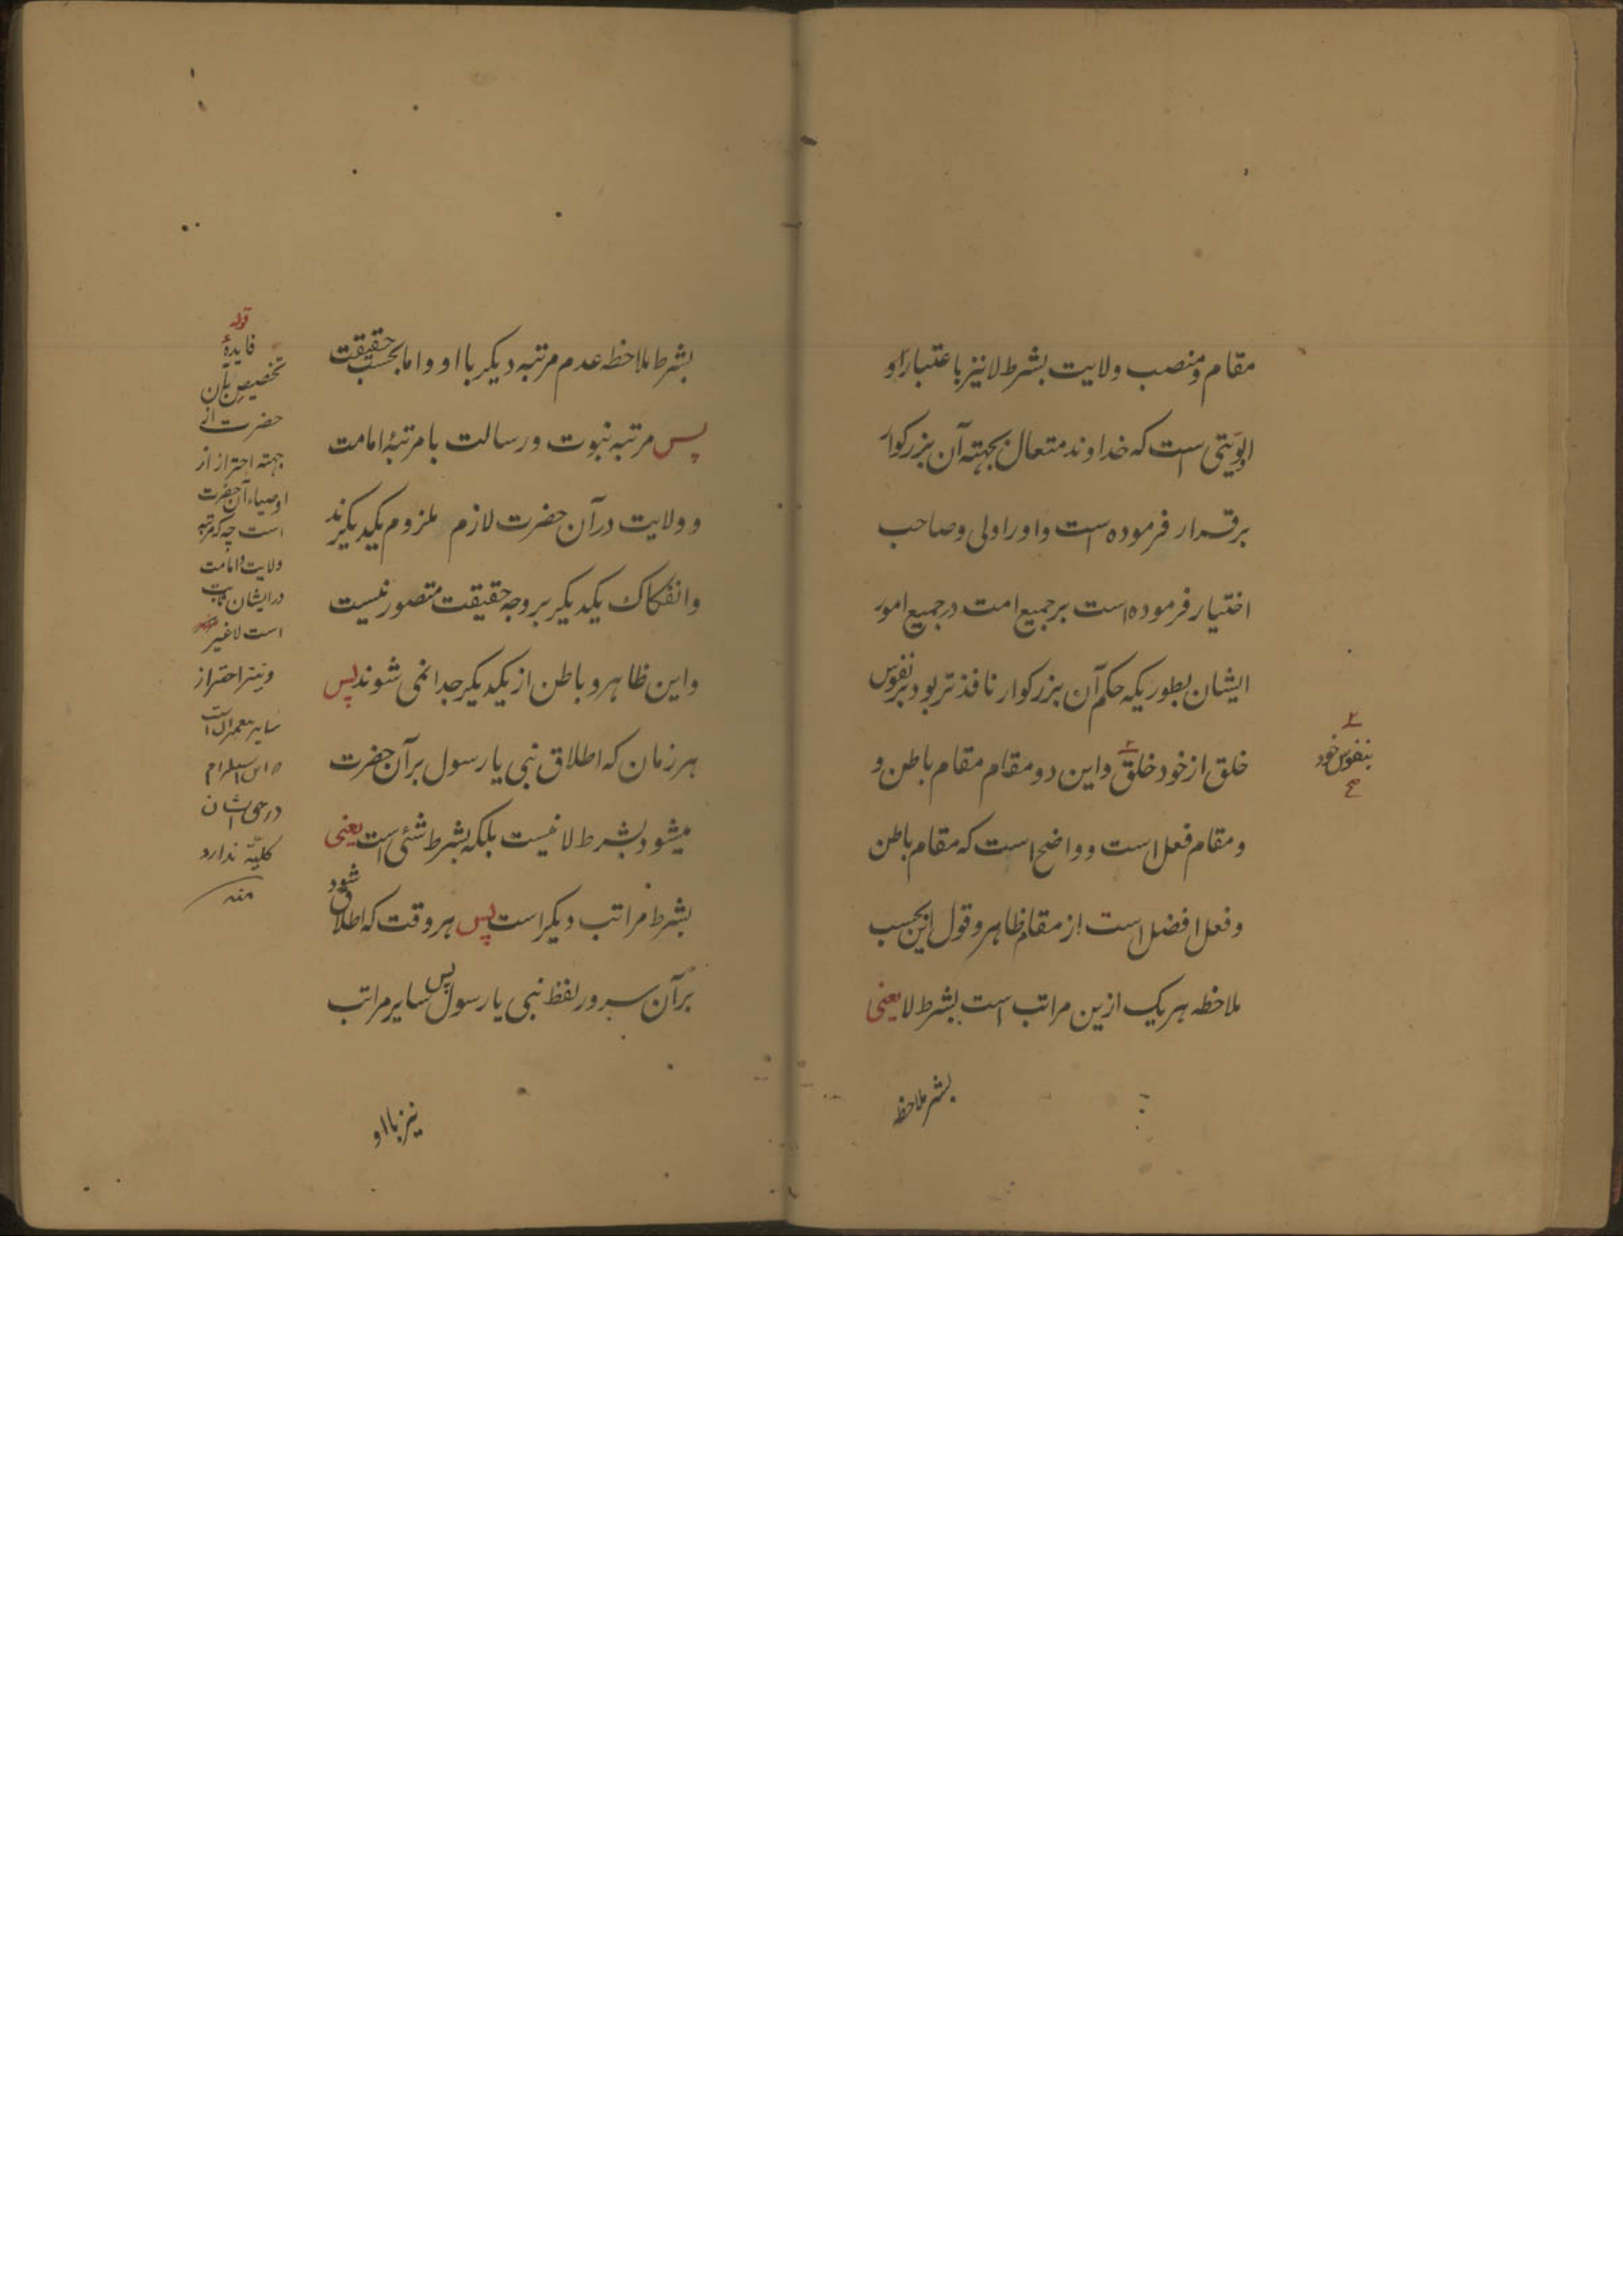 مقام و منصب ولایت بشرط لا نیز باعتبار او
اولویتی است که خداوند متعال بجهته آن بزرکوار
برقرار فرموده است و او را اولی و صاحب
اختیار فرموده است بر جمیع امت در جمیع امور
ایشان بطوریکه حکم آن بزرکوار نافذتر بود بر نفوس
خلق از خود خلق و این دو مقام مقام باطن و
و مقام فعل است و واضح است که مقام باطن
و فعل افضل است از مقام ظاهر و قول این بحسب
ملاحظه هر یک ازین مراتب است بشرط لا یعنی
بشر ملاحظه
بنفوس خود
بشرط ملاحظه عدم مرتبه دیکر با او و اما بحسب حقیقت
پس مرتبه نبوت و رسالت با مرتبهٔ امامت
و ولایت در آن حضرت لازم ملزوم یکدیکرند
و انفکاک یکدیکر بر وجه حقیقت متصور نیست
و این ظاهر و باطن از یکدیکر جدا نمی شوند پس
هر زمان که اطلاق نبی یا رسول بر آن حضرت
میشود بشرط لا نیست بلکه بشرط شئی است یعنی
بشرط مراتب دیکر است پس هر وقت که اطلاق شود
بر آن سرور لفظ نبی یا رسول پس سایر مراتب
نیز با او
قوله
فایدهٔ
تخصیص بآن
حضرت از
جهته احتراز از
اوصیاء آن حضرت
است چه که مرتبه
ولایت و امامت
در ایشان ثابت
است لا غیر
و نیز احتراز
سایر است
در ایشان
کلیّه ندارد
منه